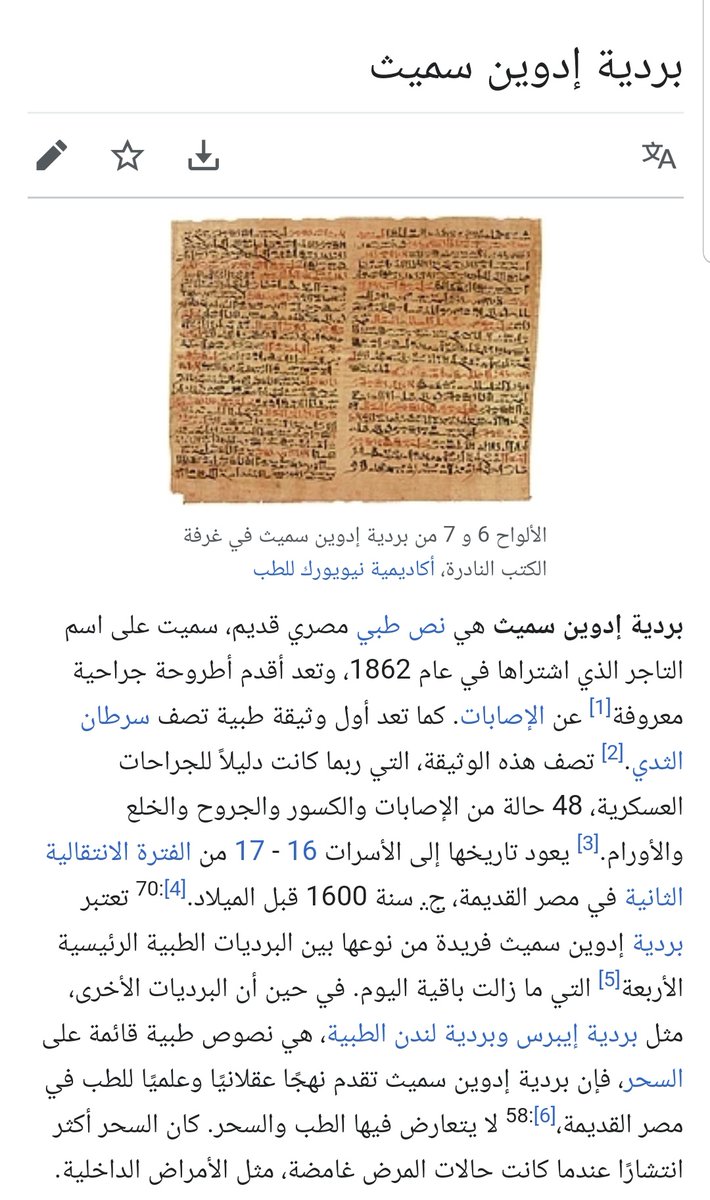 بردية إدوين سميث
الألواح 6 و 7 من بردية إدوين سميث في غرفة
الكتب النادرة، أكاديمية نيويورك للطب
بردية إدوين سميث هي نص طبي مصري قديم، سميت على اسم
التاجر الذي اشتراها في عام 1862، وتعد أقدم أطروحة جراحية
معروفة[1] عن الإصابات. كما تعد أول وثيقة طبية تصف سرطان
الثدي.[2] تصف هذه الوثيقة، التي ربما كانت دليلاً للجراحات
العسكرية، 48 حالة من الإصابات والكسور والجروح والخلع
والأورام.[3] يعود تاريخها إلى الأسرات 16 - 17 من الفترة الانتقالية
الثانية في مصر القديمة، ج. سنة 1600 قبل الميلاد.[4]:70 تعتبر
بردية إدوين سميث فريدة من نوعها بين البرديات الطبية الرئيسية
الأربعة[5] التي ما زالت باقية اليوم. في حين أن البرديات الأخرى،
مثل بردية إيبرس وبردية لندن الطبية، هي نصوص طبية قائمة على
السحر، فإن بردية إدوين سميث تقدم نهجًا عقلانيًا وعلميًا للطب في
مصر القديمة،[6]:58 لا يتعارض فيها الطب والسحر. كان السحر أكثر
انتشارًا عندما كانت حالات المرض غامضة، مثل الأمراض الداخلية.